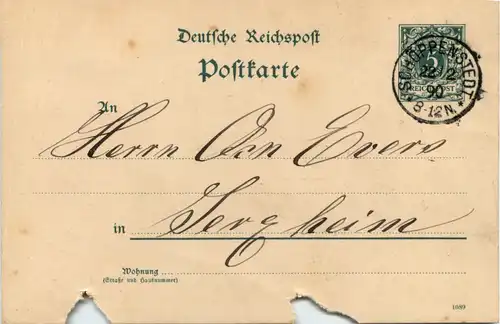 Deutsche Reichspost
Postkarte
SCHÖPPENSTEDT
22 2
90
8-12N.
5
REICHSPOST
An
Herrn Evers
in
Wohnung
(Straße und Hausnummer)
1089